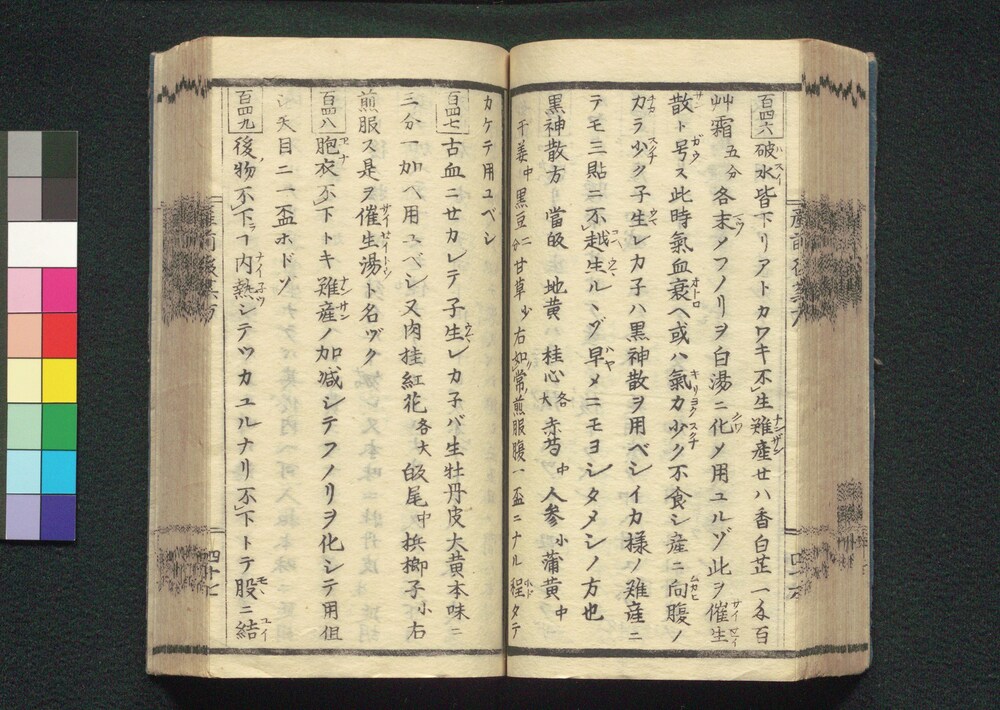 百四六 破水皆下リアトカワキ不生難產セハ香白芷一匁百
艸霜五分各末ノフノリヲ白湯ニ化メ用ユルゾ此ヲ催生
散ト号ス此時氣血衰ヘ或ハ氣力少ク不食シ産ニ向腹ノ
カラ少ク子生レカ子ハ黒神散ヲ用ベシイカ様ノ難產ニ
テモ三貼ニ不越生ルヽゾ早メニモヨシタメシノ方也
黒神散方 當皈 地黄 桂心各大 赤芍中 人参小 蒲黄中
干姜中 黒豆二分 甘草少 右如常煎服腹一盃ニナル程タテ
カケテ用ユベシ
百四七 古血ニセカレテ子生レカ子バ生牡丹皮大黄本味ニ
三分一加ヘ用ユベシ又肉桂紅花各大 皈尾中 梹榔子小 右
煎服ス是ヲ催生湯ト名ヅク
百四八 胞衣不下トキ難產ノ加減シテフノリヲ化シテ用但
シ天目ニ一盃ホドツ
百四九 後物不下ヿ内熱シテツカユルナリ不下トテ股ニ結
四十七